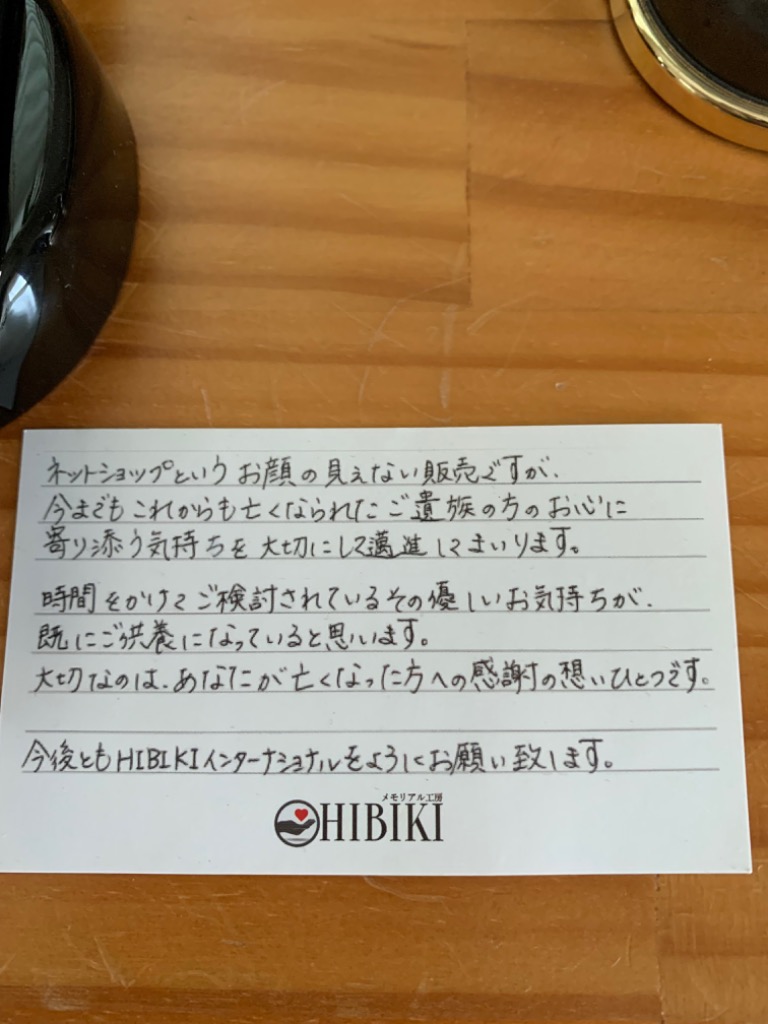 ネットショップというお顔の見えない販売ですが、
今までもこれからも亡くなられたご遺族の方のお心に
寄り添う気持ちを大切にして邁進してまいります。
時間をかけてご検討されているその優しいお気持ちが、
既にご供養になっていると思います。
大切なのは、あなたが亡くなった方への感謝の想いひとつです。
今後ともHIBIKIインターナショナルをよろしくお願い致します。
メモリアル工房
HIBIKI